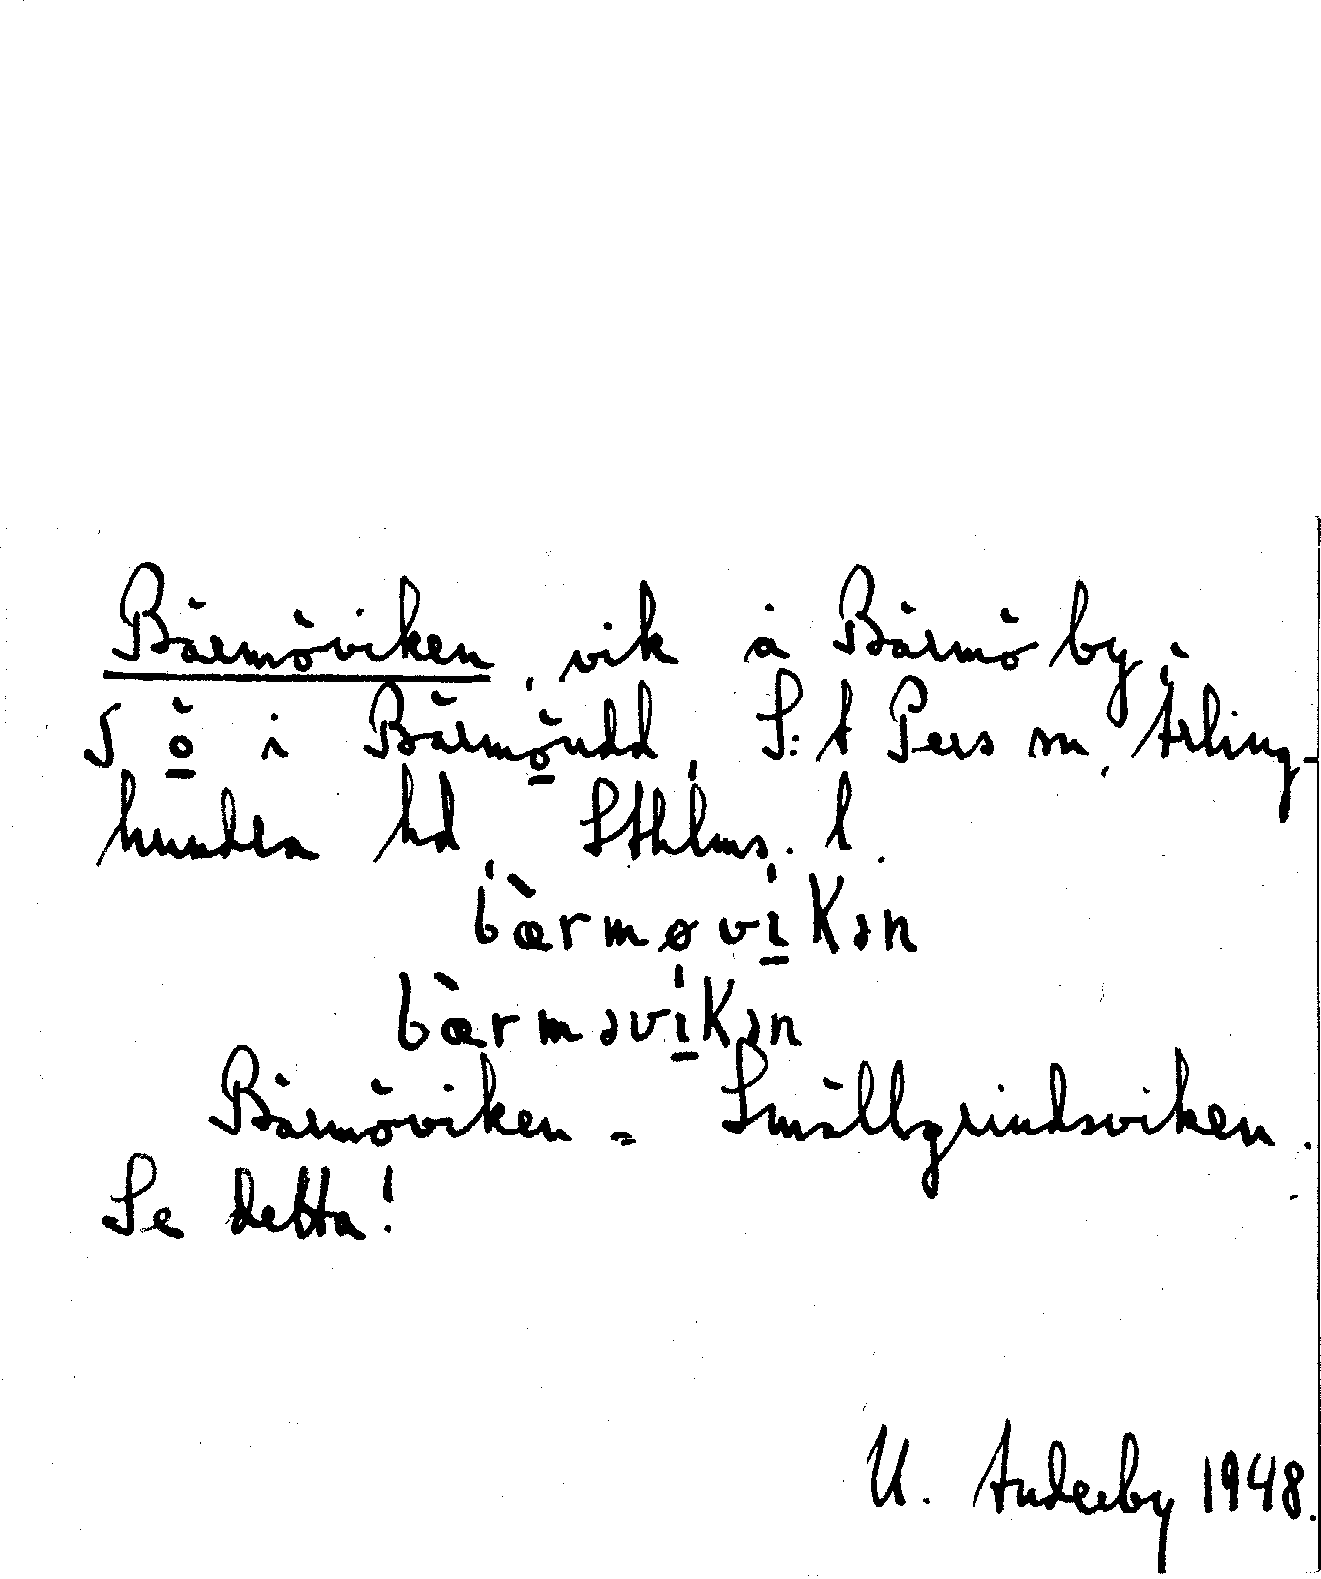 Bärmöviken, vik å Bärmö by,
S ö i Bärmöudd, S:t Pers sn, Ärling-
hundra hd, Sthlms. l.
b̀ærmøvíkən
b̀ærməvíkən
Bärmöviken = Smällgrindsviken.
Se detta!
U. Anderby 1948.